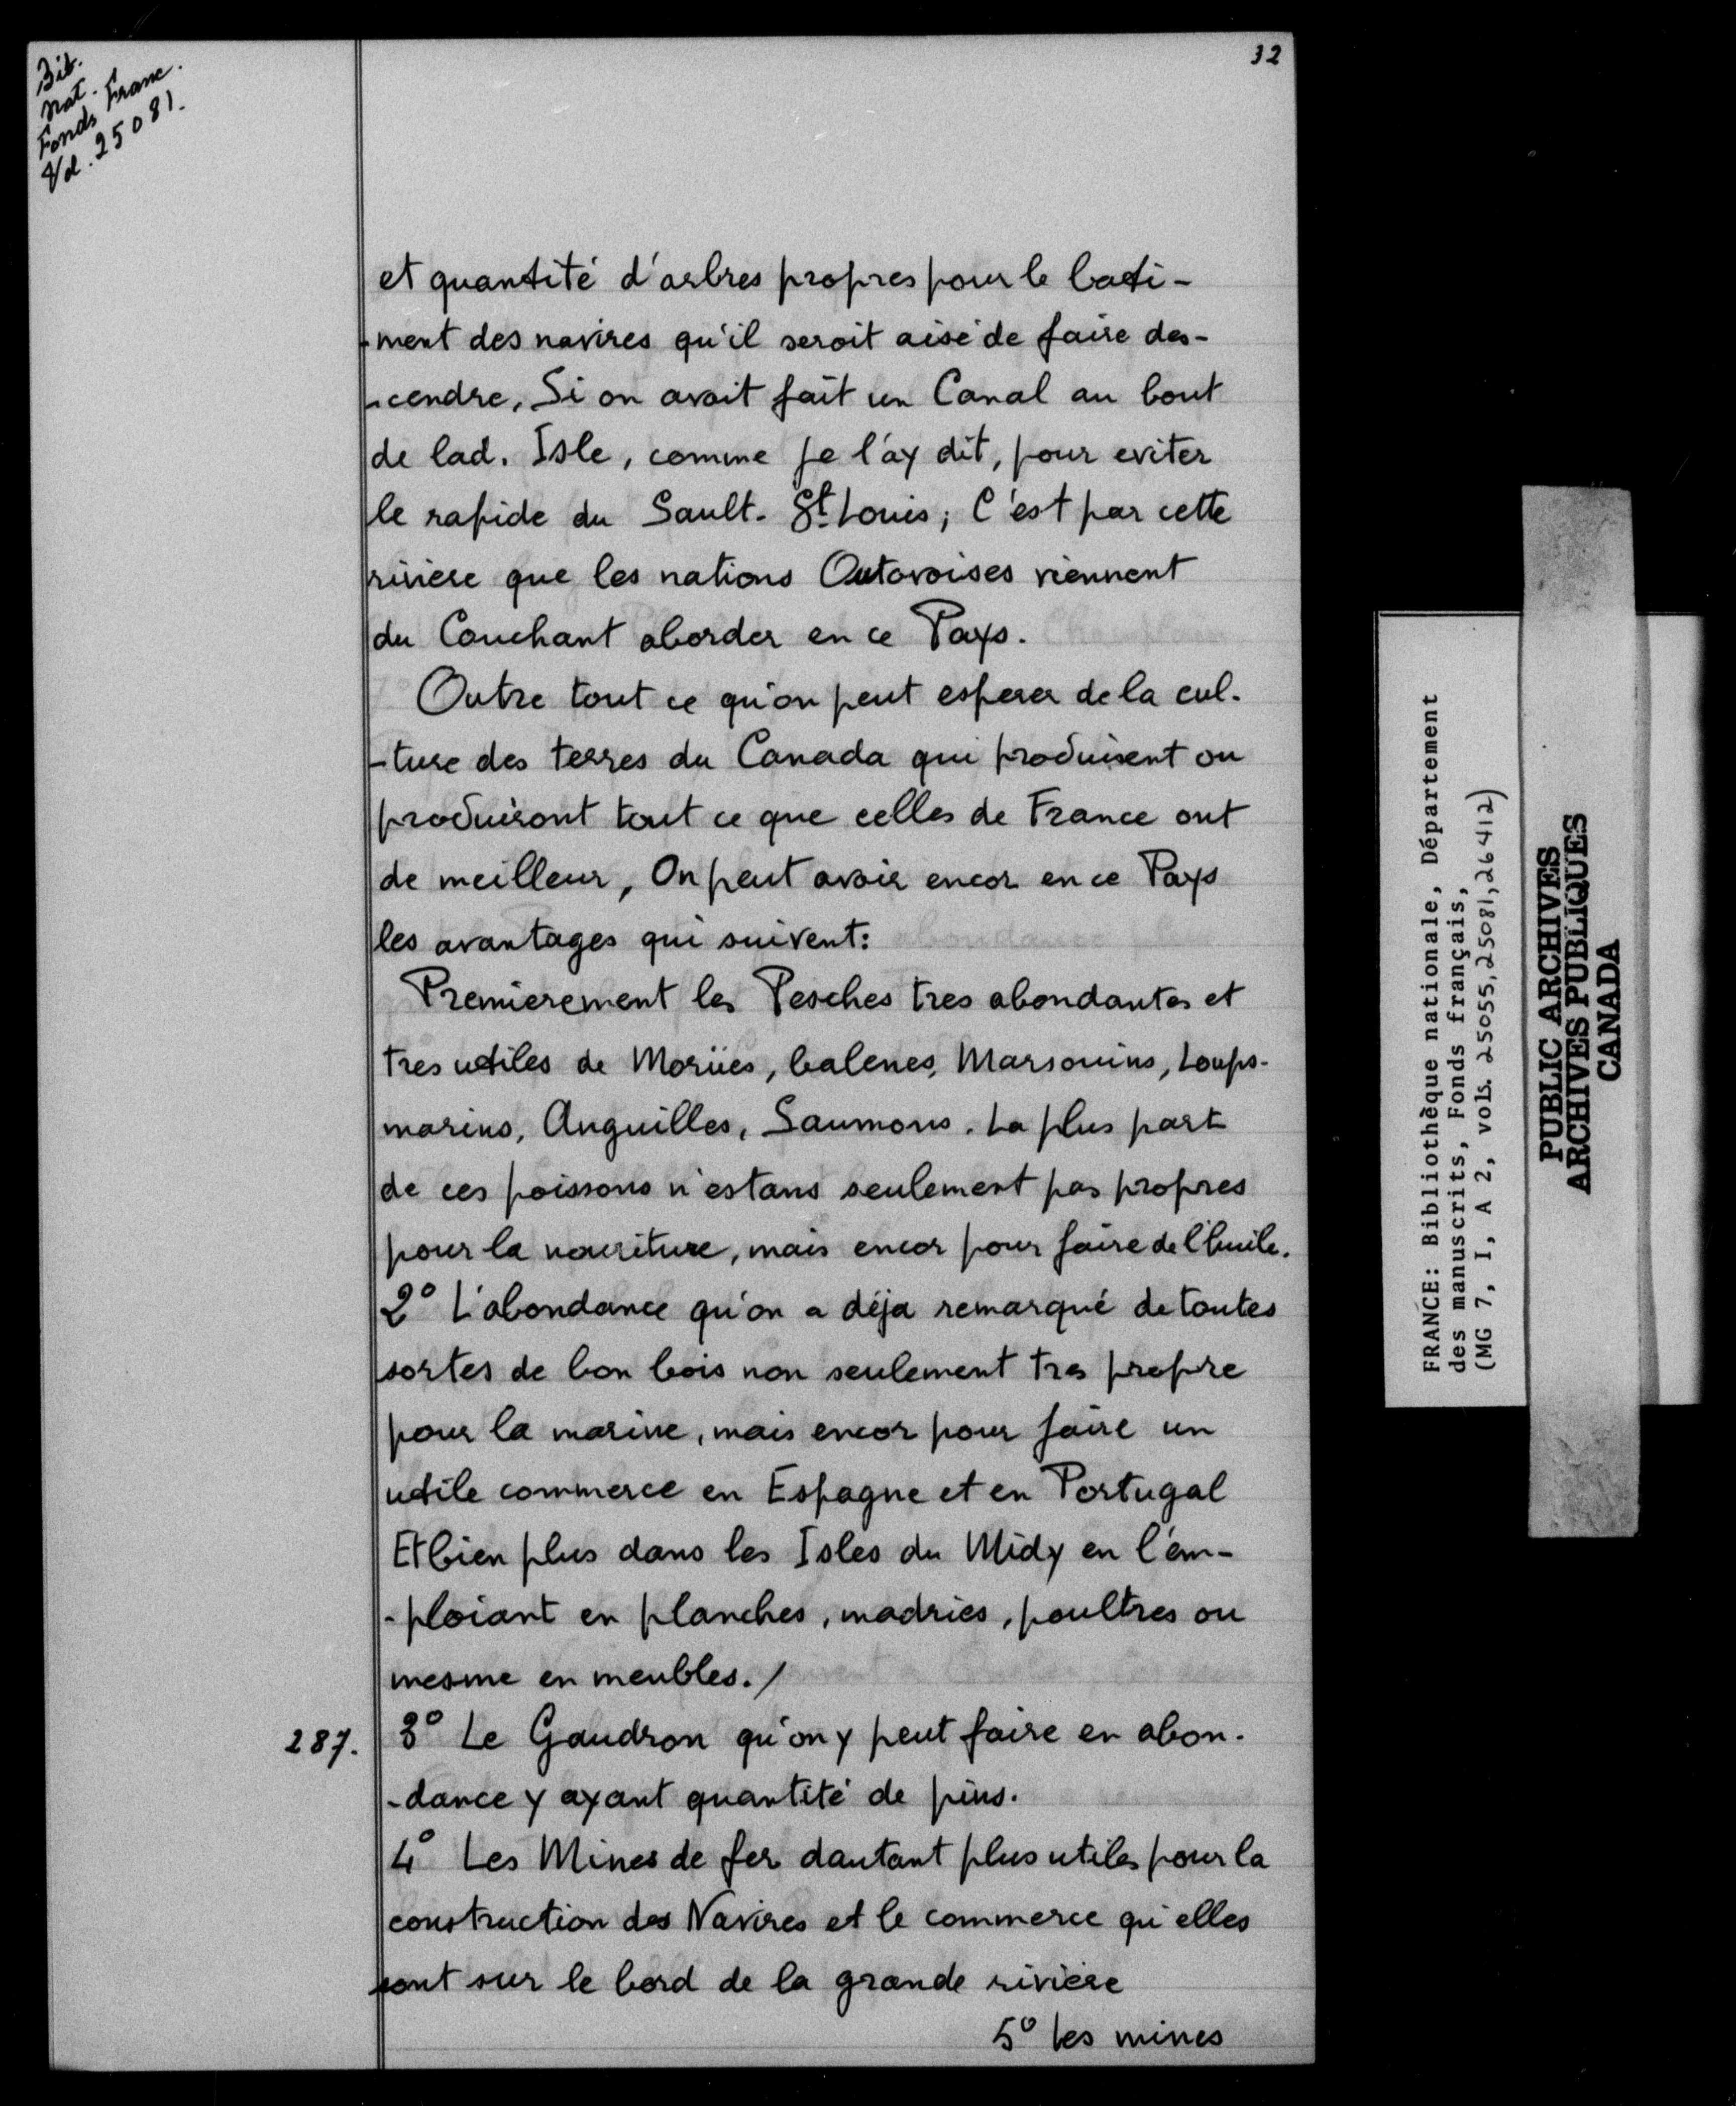 Bib.
Nat.
Fonds Franc.
Vol. 25081.
32
et quantité d'arbres propres pour le bati-
-ment des navires qu'il seroit aisé de faire des-
-cendre, Si on avoit fait un Canal au bout
de lad. Isle, comme je l'ay dit, pour eviter
le rapide du Sault-St. Louis; C'est par cette
riviere que les nations Outavoises viennent
du Couchant aborder en ce Pays.
Outre tout ce qu'on peut esperer de la cul-
-ture des terres du Canada qui produisent ou
produiront tout ce que celles de France ont
de meilleur, On peut avoir encor en ce Pays
les avantages qui suivent:
Premierement les Pesches tres abondantes et
tres utiles de Morües, balenes, Marsouins, Loups-
marins, Anguilles, Saumons. La plus part
de ces poissons n'estans seulement pas propres
pour la nouriture, mais encor pour faire de l'huile.
2° L'abondance qu'on a déja remarqué de toutes
sortes de bon bois non seulement tres propre
pour la marine, mais encor pour faire un
utile commerce en Espagne et en Portugal
Et bien plus dans les Isles du Midy en l'em-
-ploiant en planches, madries, poultres ou
mesme en meubles./
287.
3° Le Gaudron qu'on y peut faire en abon-
-dance y ayant quantité de pins.
4° Les Mines de fer dautant plus utiles pour la
construction des Navires et le commerce qu'elles
sont sur le bord de la grande riviére
5° les mines
FRANCE: Bibliothèque nationale, Département
des manuscrits, Fonds français,
(MG 7, I, A 2, vols. 25055, 25081, 26412)
PUBLIC ARCHIVES
ARCHIVES PUBLIQUES
CANADA